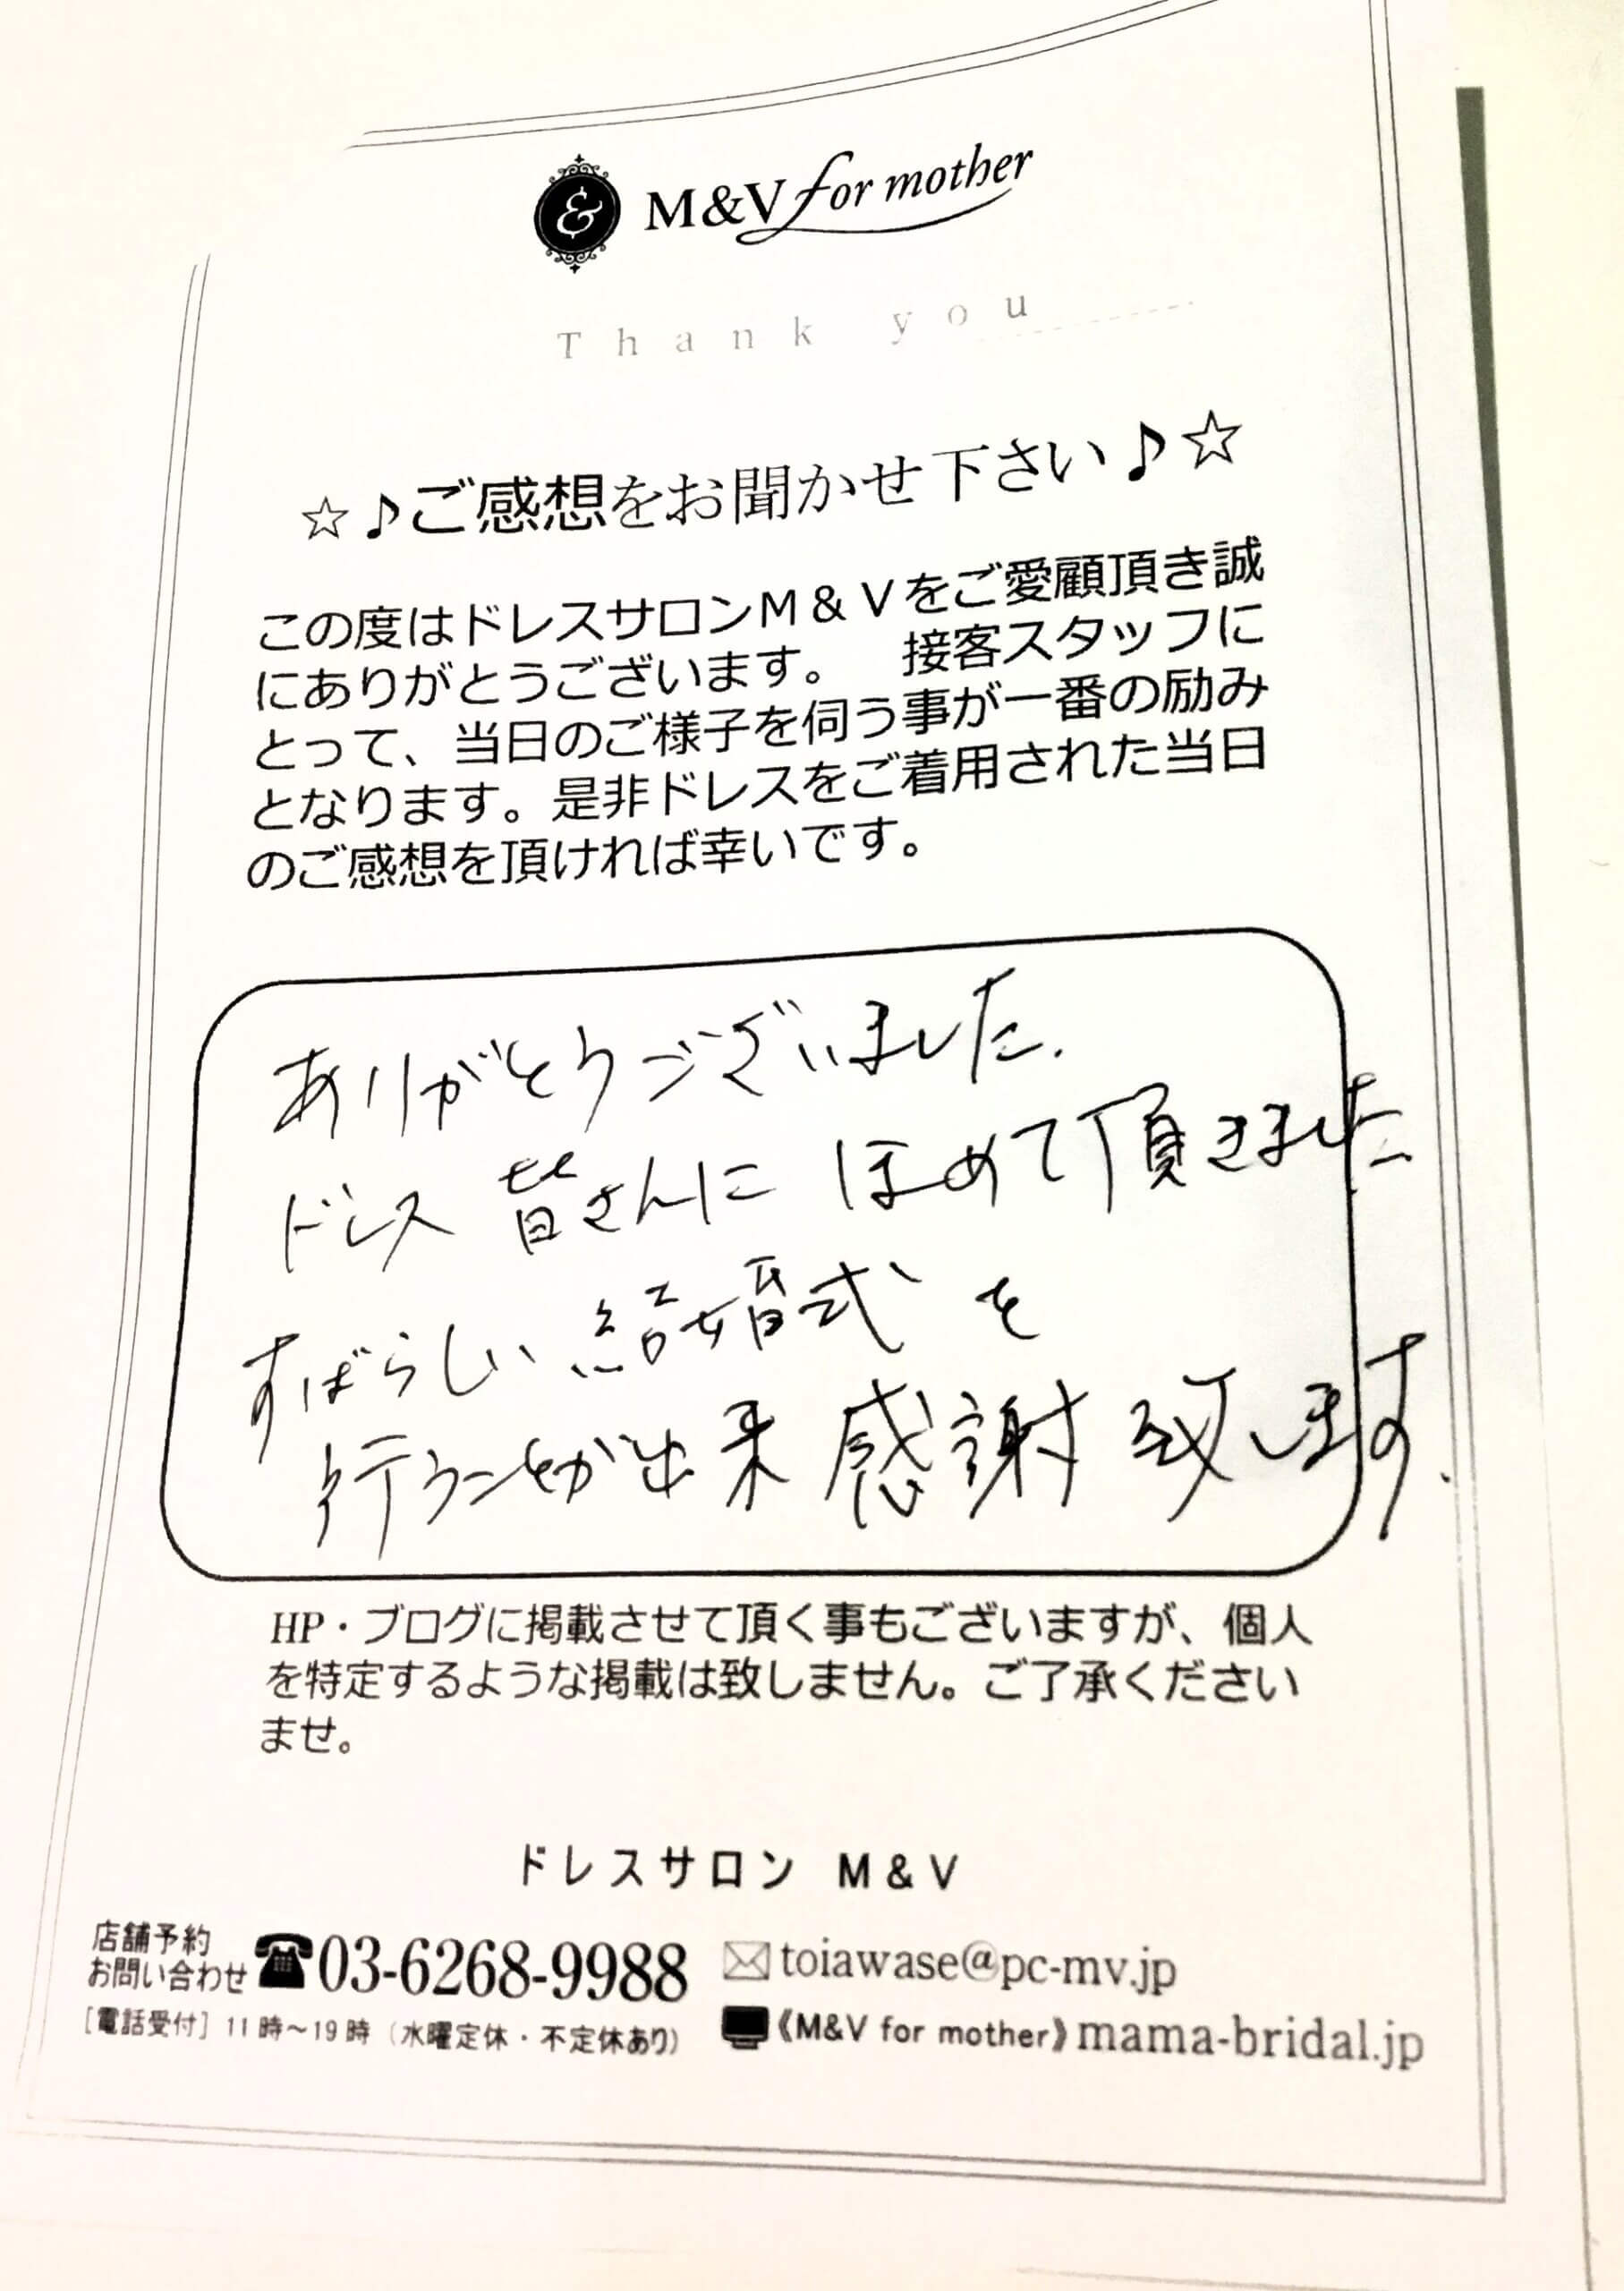 & M&V for mother
Thank you
☆♪ご感想をお聞かせ下さい♪☆
この度はドレスサロンM&Vをご愛顧頂き誠
にありがとうございます。 接客スタッフに
とって、当日のご様子を伺う事が一番の励み
となります。是非ドレスをご着用された当日
のご感想を頂ければ幸いです。
ありがとうございました.
ドレス 皆さんに ほめて頂きました
すばらしい 結婚式 を
行うことが出来 感謝 致します.
HP・ブログに掲載させて頂く事もございますが、個人
を特定するような掲載は致しません。ご了承ください
ませ。
ドレスサロン M&V
店舗予約
お問い合わせ ☎03-6268-9988
[電話受付] 11時~19時 (水曜定休・不定休あり)
toiawase@pc-mv.jp
《M&V for mother》mama-bridal.jp